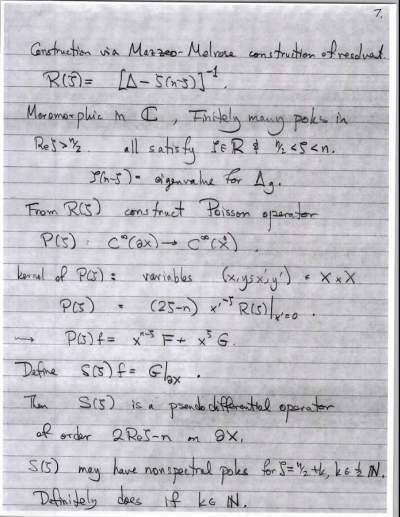 7.
Construction via Mazzeo-Melrose construction of resolvent
R(ζ) = [Δ - ζ(n-ζ)]⁻¹.
Meromorphic in ℂ, Finitely many poles in
Re ζ > n/2. all satisfy ζ ∈ ℝ & n/2 < ζ < n.
ζ(n-ζ) = eigenvalue for Δg.
From R(ζ) construct Poisson operator
P(ζ): C^∞(∂X) → C^∞(X̊)
kernel of P(ζ): variables (x,y; x',y') ∈ X × X
P(ζ) = (2ζ-n) x'^{-ζ} R(ζ)|_{x'=0}.
⇝ P(ζ)f = x^{n-ζ} F + x^ζ G.
Define S(ζ)f = G|_{∂X}.
Then S(ζ) is a pseudodifferential operator
of order 2Reζ-n on ∂X.
S(ζ) may have nonspectral poles for ζ = n/2 + k, k ∈ ½ ℕ.
Definitely does if k ∈ ℕ.